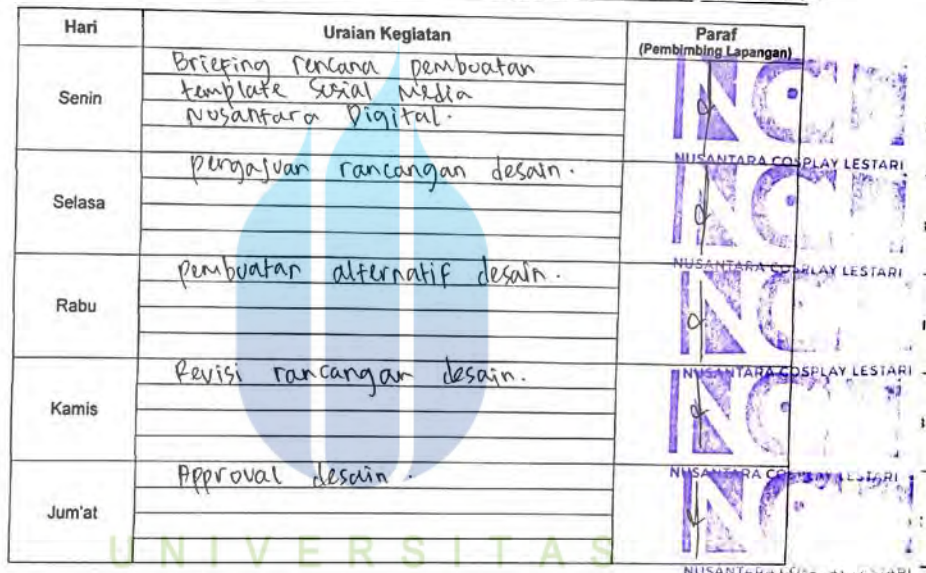 Hari Uraian Kegiatan Paraf
(Pembimbing Lapangan)
Briefing rencana pembuatan
Senin template Sosial Media
Nusantara Digital.
NUSANTARA COSPLAY LESTARI
pengajuan rancangan desain.
Selasa
NUSANTARA COSPLAY LESTARI
pembuatan alternatif desain.
Rabu
NUSANTARA COSPLAY LESTARI
Revisi rancangan desain.
Kamis
NUSANTARA COSPLAY LESTARI
Approval desain.
Jum'at
UNIVERSITAS
NUSANTARA